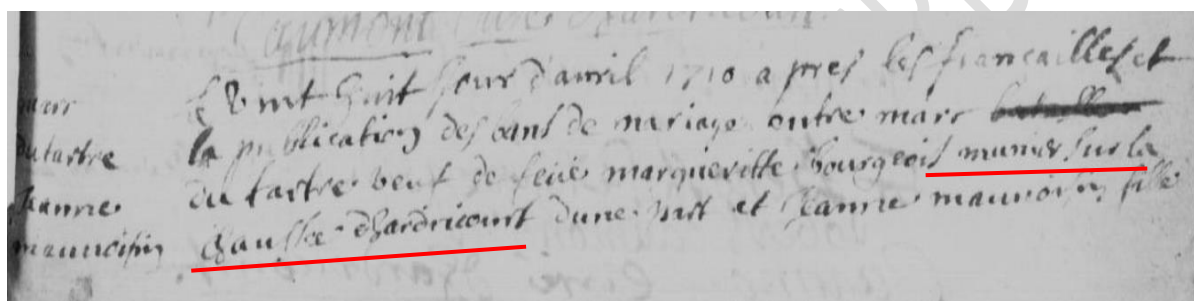 marc
dutartre
Jeanne
mauvoisin
le vint huit jour d'avril 1710 apres les fiancailles et
la publication des bans de mariage entre marc
du tartre veuf de feüe margueritte bourgeois munier sur la
chaussée d'hardricourt dune part et Jeanne mauvoisin fille